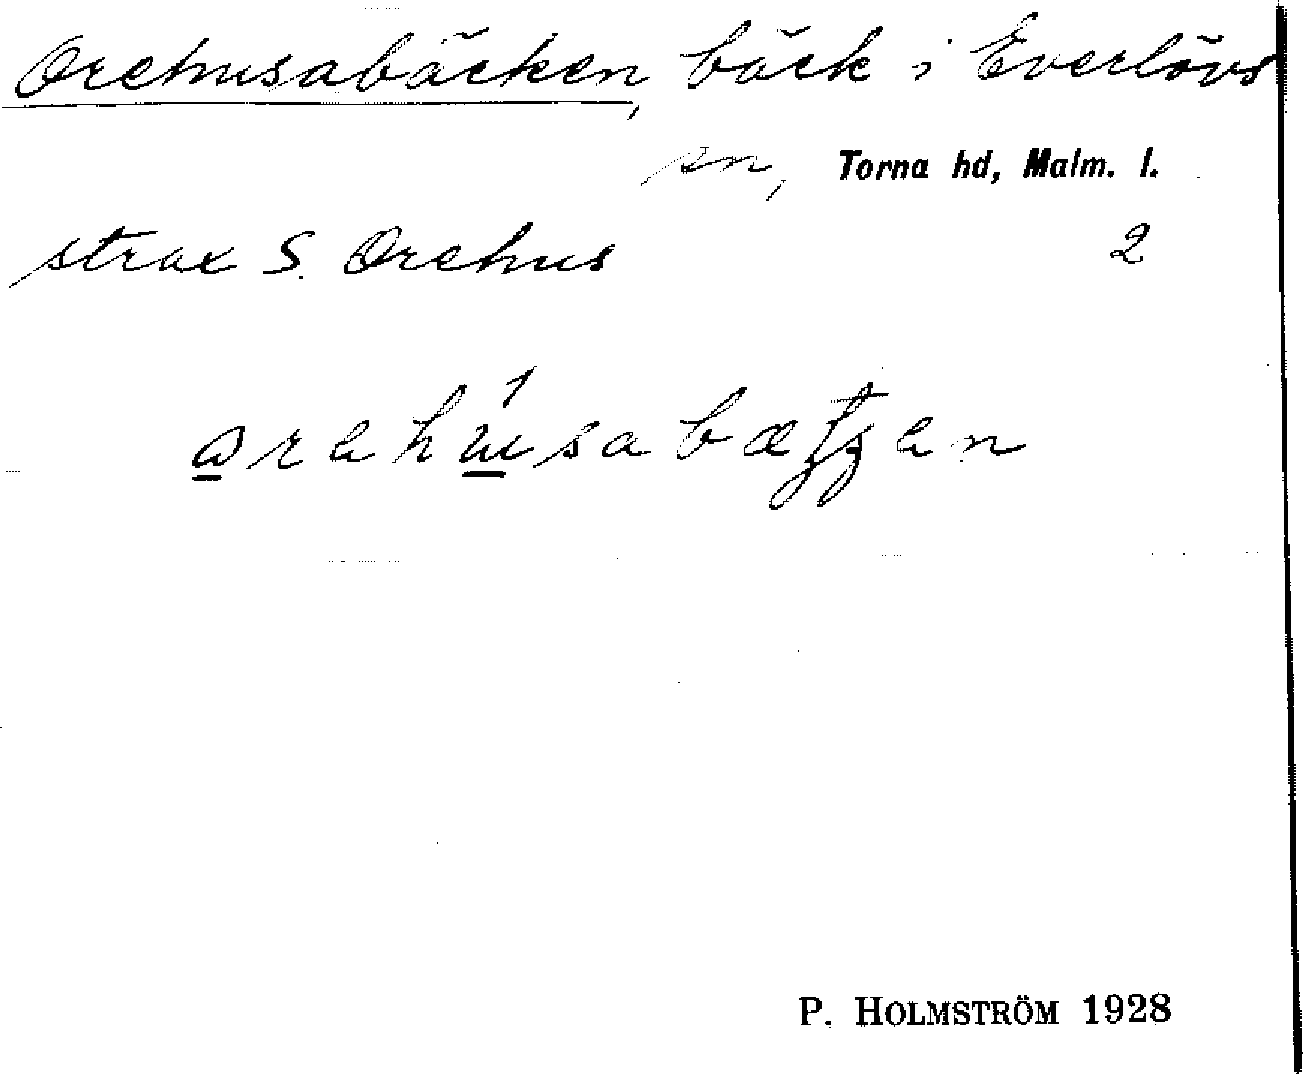 Orehusabäcken, bäck i Everlövs
sn, Torna hd, Malm. l.
strax S. Orehus 2
P. HOLMSTRÖM 1928